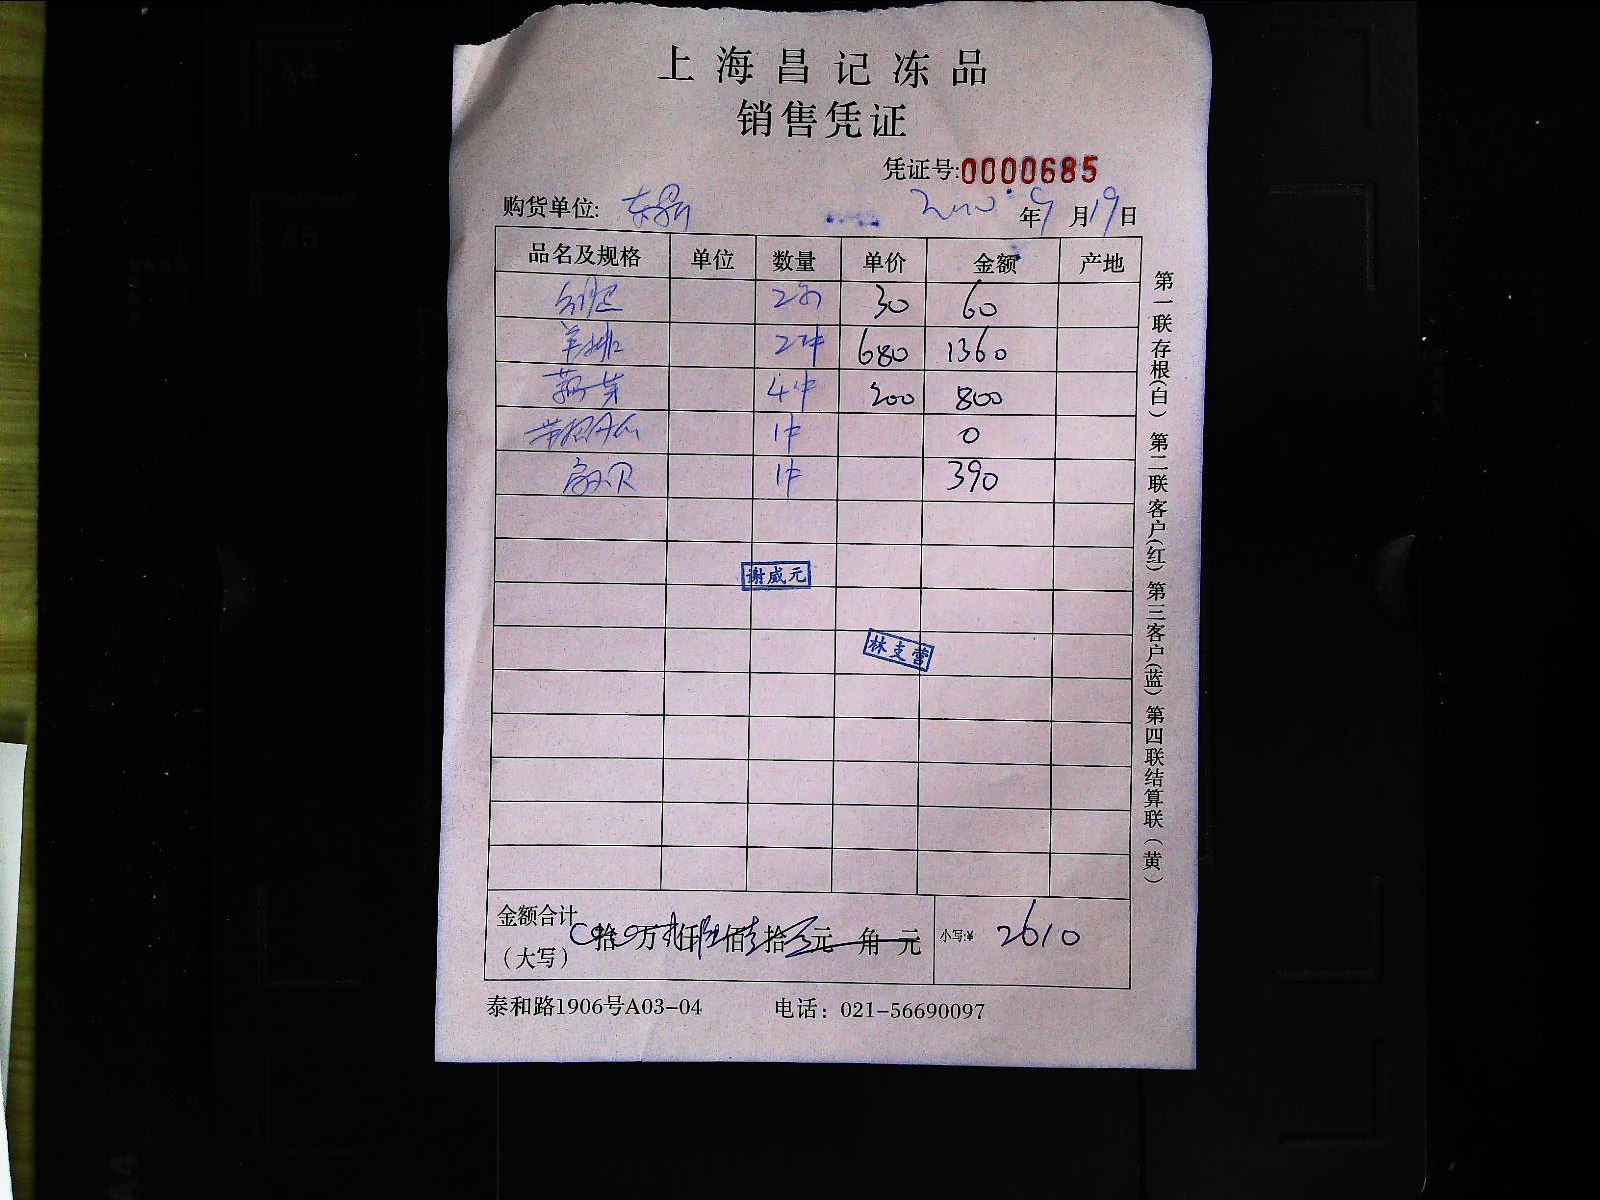 上海昌记冻品
销售凭证
凭证号:0000685
购货单位: 年9月19日
品名及规格 单位 数量 单价 金额 产地
2 30 60
羊排 2件 680 1360
4件 200 800
1件 0
扇贝 1件 390
谢威元
林支营
金额合计
(大写) 拾 万 仟 佰 拾 元 角 元 小写:¥ 2610
泰和路1906号A03-04 电话: 021-56690097
第一联存根(白) 第二联客户(红) 第三客户(蓝) 第四联结算联(黄)
A4
A5
A4